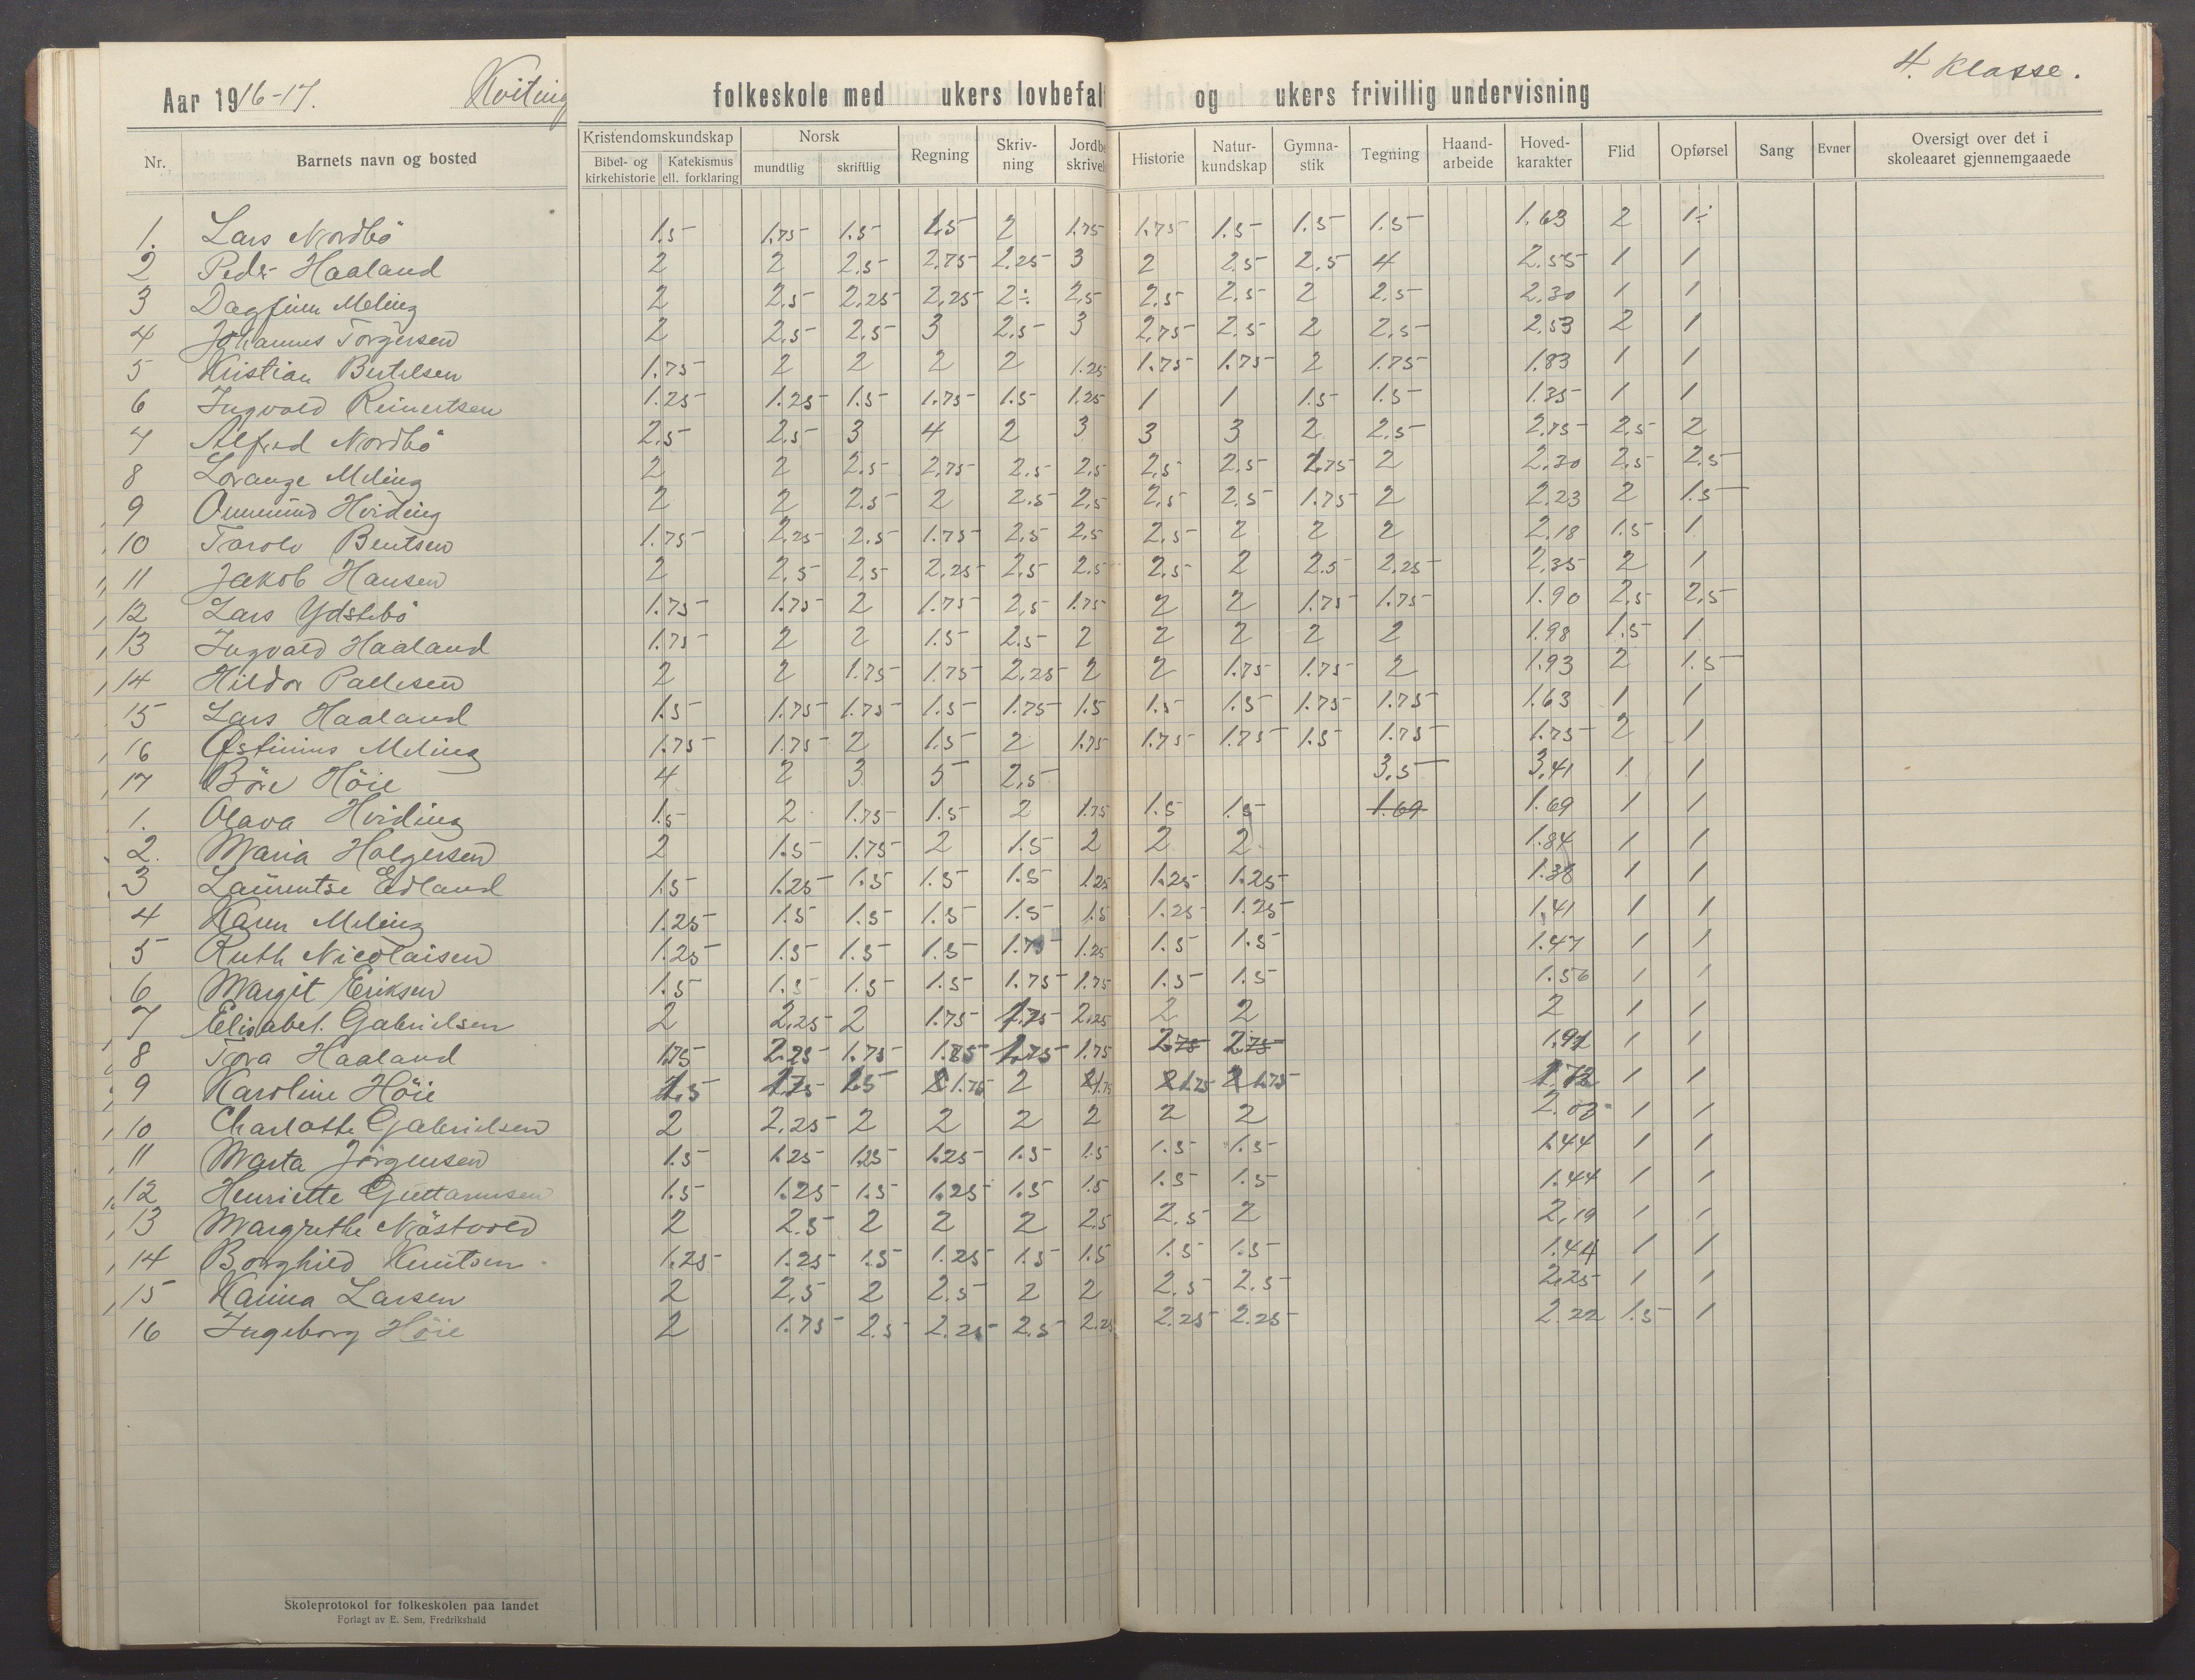 Aar 1916-17. Kviting folkeskole med ukers lovbefal og ukers frivillig undervisning 4. klasse.
Nr. Barnets navn og bosted Kristendomskundskap Bibel- og kirkehistorie Katekismus ell. forklaring Norsk mundtlig skriftlig Regning Skriv-ning Jordbe skrivel Historie Natur-kundskap Gymna-stik Tegning Haand-arbeide Hoved-karakter Flid Opførsel Sang Evner Oversigt over det i skoleaaret gjennemgaaede
1. Lars Nordbö 1.5 1.75 1.5 1.5 2 1.75 1.75 1.5 1.5 1.5 1.63 2 1÷
2 Peder Haaland 2 2 2.5 2.75 2.25 3 2 2.5 2.5 4 2.55 1 1
3 Dagfinn Meling 2 2.5 2.25 2.25 2÷ 2.5 2.5 2.5 2 2.5 2.30 1 1
4 Johannes Torgersen 2 2.5 2.5 3 2.5 3 2.75 2.5 2 2.5 2.53 2 1
5 Kristian Bertelsen 1.75 2 2 2 2 1.25 1.75 1.75 2 1.75 1.83 1 1
6 Ingvald Reinertsen 1.25 1.25 1.5 1.75 1.5 1.25 1 1 1.5 1.5 1.35 1 1
7 Alfred Nordbö 2.5 2.5 3 4 2 3 3 3 2 2.5 2.75 2.5 2
8 Lorange Meling 2 2 2.5 2.75 2.5 2.5 2.5 2.5 1.75 2 2.30 2.5 2.5
9 Ommund Hviding 2 2 2.5 2 2.5 2.5 2.5 2.5 1.75 2 2.23 2 1.5
10 Tarolv Bentsen 1.75 2.25 2.5 1.75 2.5 2.5 2.5 2 2 2 2.18 1.5 1
11 Jakob Hansen 2 2.5 2.5 2.25 2.5 2.5 2.5 2 2.5 2.25 2.35 2 1
12 Lars Ydstebö 1.75 1.75 2 1.75 2.5 1.75 2 2 1.75 1.75 1.90 2.5 2.5
13 Ingvald Haaland 1.75 2 2 1.5 2.5 2 2 2 2 2 1.98 1.5 1
14 Hildor Pallesen 2 2 1.75 1.75 2.25 2 2 1.75 1.75 2 1.93 2 1.5
15 Lars Haaland 1.5 1.75 1.75 1.5 1.75 1.5 1.5 1.5 1.75 1.75 1.63 1 1
16 Østinius Meling 1.75 1.75 2 1.5 2 1.75 1.75 1.75 1.5 1.75 1.75 2 1
17 Böre Höie 4 2 3 5 2.5 3.5 3.41 1 1
1. Olava Hviding 1.5 2 1.75 1.5 2 1.75 1.5 1.5 1.69 1.69 1 1
2. Maria Holgersen 2 1.5 1.75 2 1.5 2 2 2 1.84 1 1
3 Laurentse Edland 1.5 1.25 1.5 1.5 1.5 1.25 1.25 1.25 1.38 1 1
4 Karen Meling 1.25 1.5 1.5 1.5 1.5 1.5 1.25 1.25 1.41 1 1
5 Ruth Nicolaisen 1.25 1.5 1.5 1.5 1.75 1.25 1.5 1.5 1.47 1 1
6 Margit Eriksen 1.5 1.5 1.5 1.5 1.75 1.75 1.5 1.5 1.56 1 1
7 Elisabet Gabrielsen 2 2.25 2 1.75 1.75 2.25 2 2 2 1 1
8 Tora Haaland 1.75 2.25 1.75 1.75 1.75 2.75 2.75 1 1
9 Karoline Höie 1.5 1.75 1.5 1.75 2 1.75 1.75 1.75 1.72 1 1
10 Charlotte Gabrielsen 2 2.25 2 2 2 2 2 2 2.03 1 1
11 Marta Jörgensen 1.5 1.25 1.25 1.25 1.5 1.5 1.5 1.5 1.44 1 1
12 Henriette Guttormsen 1.5 1.25 1.5 1.25 1.5 1.5 1.5 1.5 1.44 1 1
13 Margrethe Nästvold 2 2.5 2 2 2 2.5 2.5 2 2.19 1 1
14 Borghild Knutsen 1.25 1.25 1.5 1.25 1.5 1.5 1.5 1.5 1.44 1 1
15 Hanna Larsen 2 2.5 2 2.5 2 2 2.5 2.5 2.25 1 1
16 Ingeborg Höie 2 1.75 2.5 2.25 2.5 2.25 2.25 2.25 2.22 1.5 1
Skoleprotokol for folkeskolen paa landet
Forlagt av E. Sem, Fredrikshald